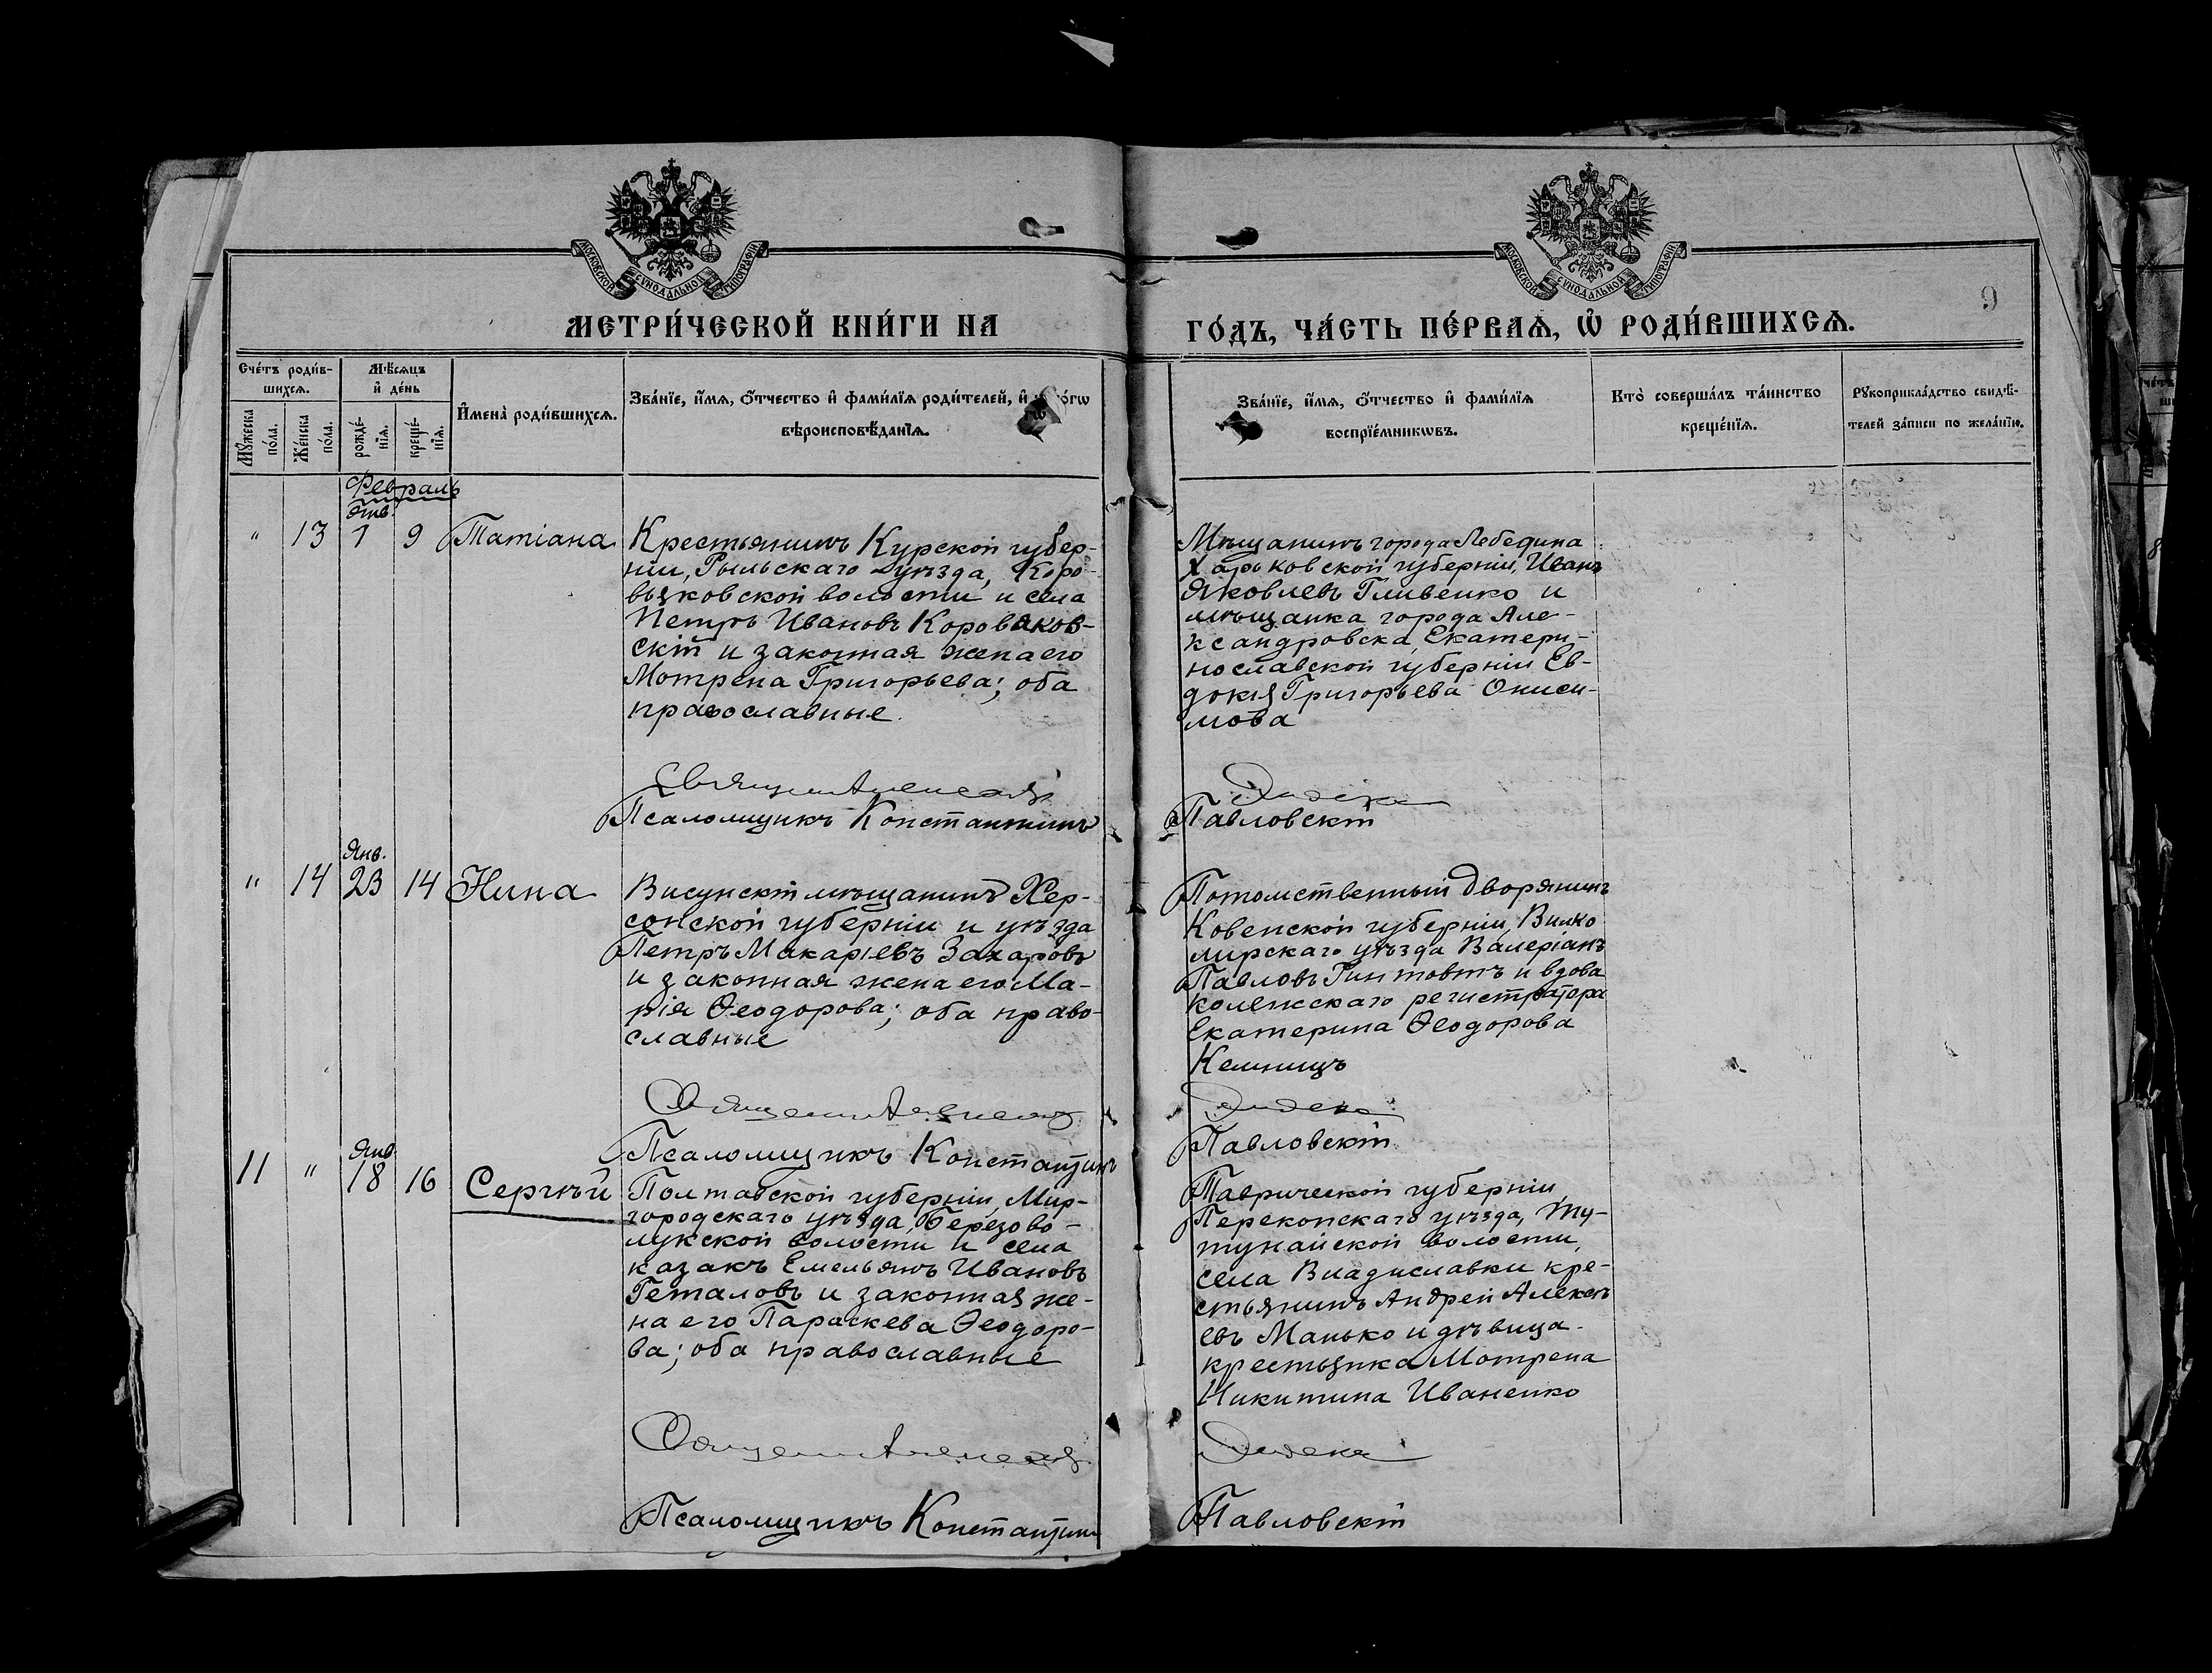 МОСКОВСКОЙ СѴНОДАЛЬНОЙ ТИПОГРАФІИ
МОСКОВСКОЙ СѴНОДАЛЬНОЙ ТИПОГРАФІИ
9
МЕТРИ́ЧЕСКОЙ КНИ́ГИ НА
ГО́ДЪ, ЧА́СТЬ ПЕ́РВАѦ, Ѡ҆ РОДИ́ВШИХСѦ.
Сче́тъ роди́в-
шихсѧ.
Мꙋ́жеска
по́ла.
Же́нска
по́ла.
Мѣ́сѧцъ
и҆ де́нь
рожде́-
нїѧ.
креще́-
нїѧ.
И҆мена̀ роди́вшихсѧ.
Зва́нїе, и҆́мѧ, ѻ҆́тчество и҆ фами́лїѧ роди́телей, и҆
вѣроисповѣ́данїѧ.
Зва́нїе, и҆́мѧ, ѻ҆́тчество и҆ фами́лїѧ
воспрїе́мникѡвъ.
Кто̀ соверша́лъ та́инство
креще́нїѧ.
Рꙋкоприкла́дство свидѣ́-
телей за́писи по жела́нїю.
Февраль
Янв.
" 13 1 9 Татіана
Крестьянинъ Курской губер-
ніи, Рыльскаго уѣзда, Коро-
вяковской волости и села
Петръ Ивановъ Коровяков-
скій и законная жена его
Мотрена Григорьева; оба
православные.
Мѣщанинъ города Лебедина
Харьковской губерніи, Иванъ
Яковлевъ Гливенко и
мѣщанка города Але-
ксандровска, Екатери-
нославской губерніи Ев-
докія ГригорьеваОниси-
мова
Псаломщикъ Константинъ
Павловскій
Янв.
" 14 23 14 Нина
Висунскій мѣщанинъ Хер-
сонской губерніи и уѣзда
Петръ Макаріевъ Захаровъ
и законная жена его Ма-
рія Ѳеодорова; оба право-
славные
Потомственный дворянинъ
Ковенской губерніи, Вилко
мирскаго уѣзда Валеріанъ
Павловъ Гинтовтъ и вдова
колежскаго регистратора
Екатерина Ѳеодорова
Кемницъ
Псаломщикъ Константинъ
Павловскій
Янв.
11 " 18 16 Сергѣй
Полтавской губерніи, Мир-
городскаго уѣзда, Березово-
лукской волости и села
казакъ Емельянъ Ивановъ
Геталовъ и законная же-
на его Параскева Ѳеодоро-
ва; оба православные
Таврической губерніи
Перекопскаго уѣзда, Ту-
тунайской волости,
села Владиславки кре-
стьянинъ Андрей Алексѣ
евъ Манько и дѣвица
крестьянка Мотрена
Никитина Иваненко
Псаломщикъ Константинъ
Павловскій